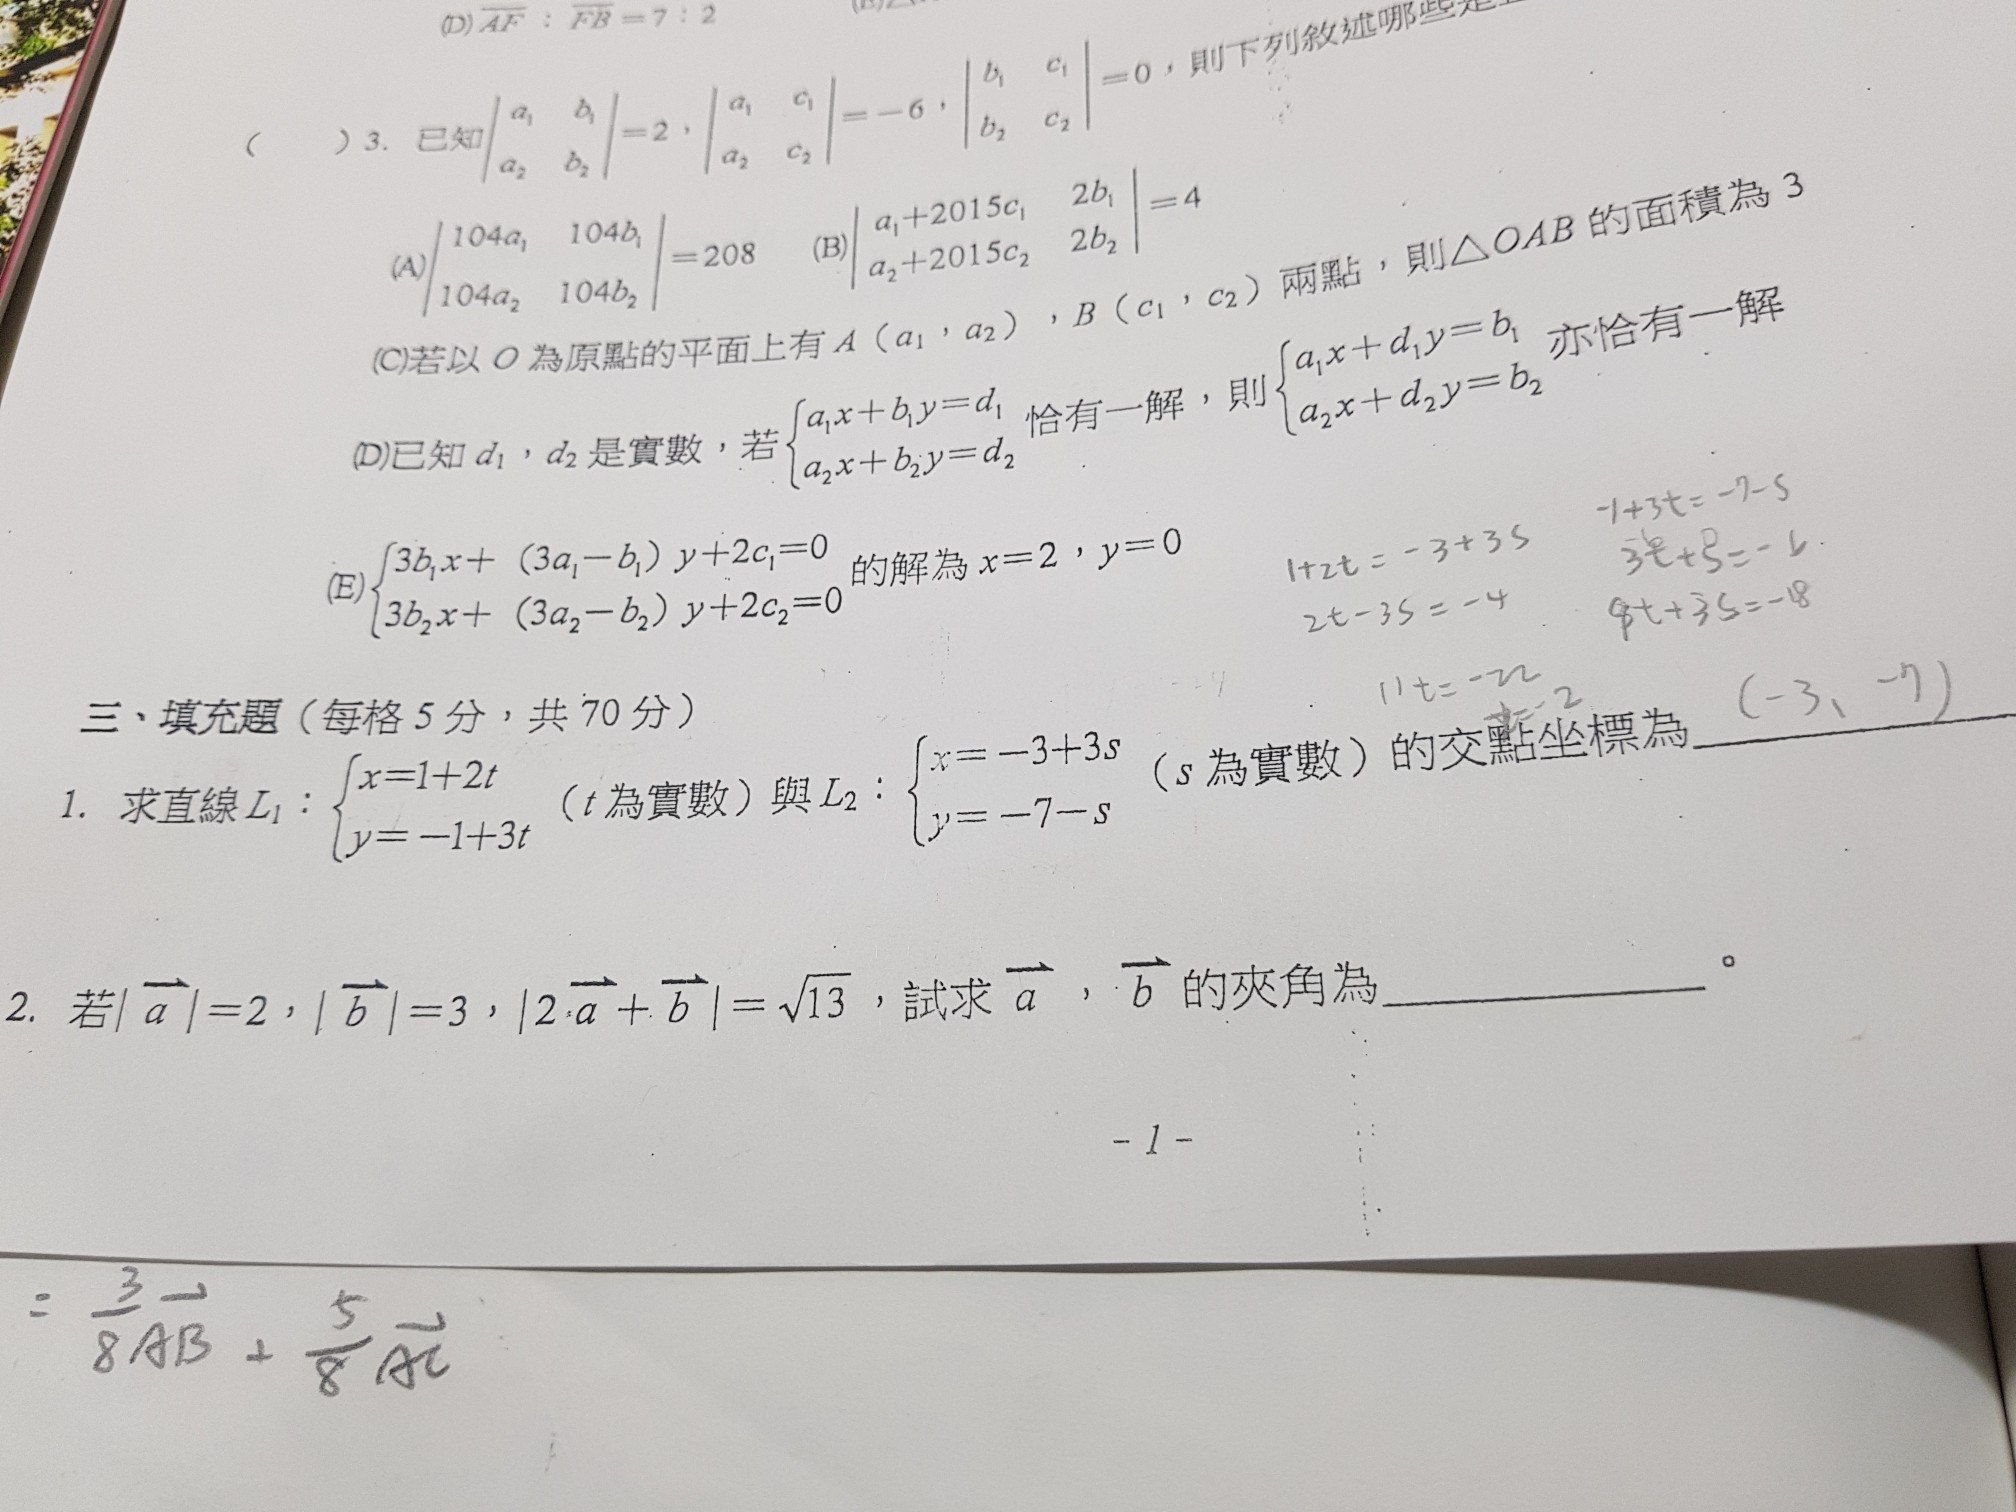 (D) AF : FB = 7 : 2
( ) 3. 已知 | a₁ b₁ ; a₂ b₂ | = 2 , | a₁ c₁ ; a₂ c₂ | = -6 , | b₁ c₁ ; b₂ c₂ | = 0 , 則下列敘述哪些是
(A) | 104a₁ 104b₁ ; 104a₂ 104b₂ | = 208 (B) | a₁+2015c₁ 2b₁ ; a₂+2015c₂ 2b₂ | = 4
(C)若以 O 為原點的平面上有 A(a₁,a₂),B(c₁,c₂)兩點,則△OAB 的面積為 3
(D)已知 d₁,d₂ 是實數,若 { a₁x+b₁y=d₁ ; a₂x+b₂y=d₂ 恰有一解,則 { a₁x+d₁y=b₁ ; a₂x+d₂y=b₂ 亦恰有一解
(E) { 3b₁x+(3a₁-b₁)y+2c₁=0 ; 3b₂x+(3a₂-b₂)y+2c₂=0 的解為 x=2,y=0
1+2t = -3+3s
2t-3s = -4
-1+3t = -7-s
3t+s = -6
9t+3s = -18
11t = -22
t = -2
三、填充題(每格 5 分,共 70 分)
1. 求直線 L₁: { x=1+2t ; y=-1+3t (t 為實數)與 L₂: { x=-3+3s ; y=-7-s (s 為實數)的交點坐標為 (-3、-7)
2. 若|a⃗|=2,|b⃗|=3,|2a⃗+b⃗|=√13,試求 a⃗,b⃗ 的夾角為________。
- 1 -
= 3/8 AB⃗ + 5/8 AC⃗